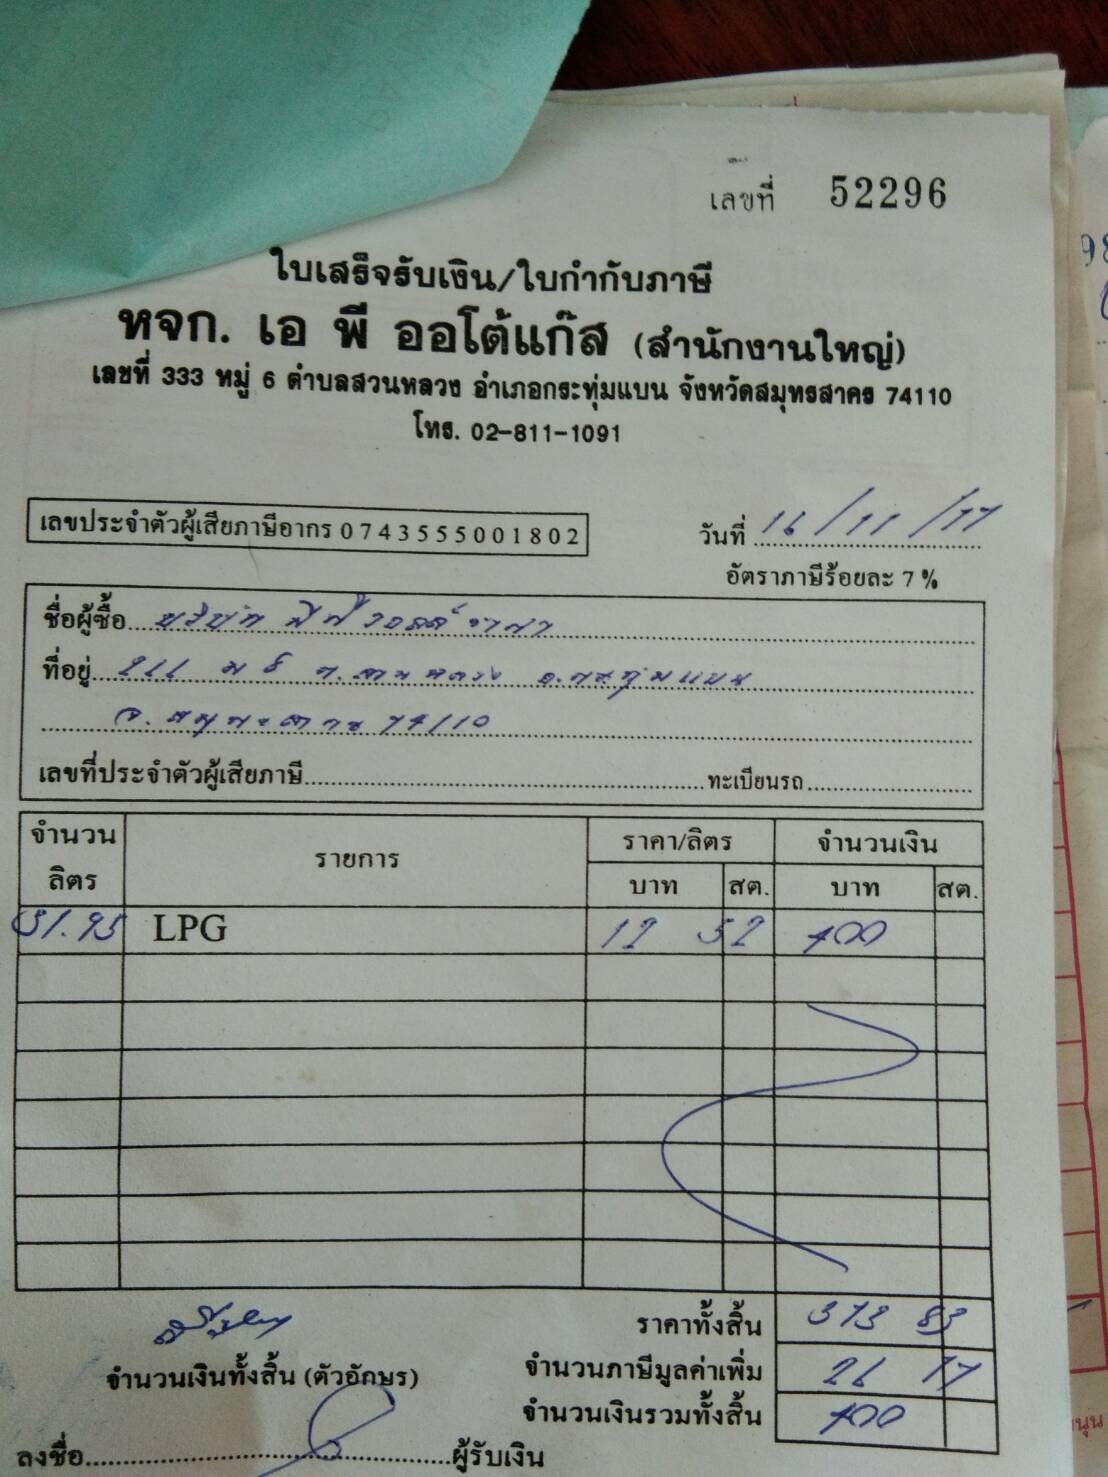 เลขที่ 52296
ใบเสร็จรับเงิน/ใบกำกับภาษี
หจก. เอ พี ออโต้แก๊ส (สำนักงานใหญ่)
เลขที่ 333 หมู่ 6 ตำบลสวนหลวง อำเภอกระทุ่มแบน จังหวัดสมุทรสาคร 74110
โทร. 02-811-1091
เลขประจำตัวผู้เสียภาษีอากร 0743555001802
วันที่ 16/11/17
อัตราภาษีร้อยละ 7%
ชื่อผู้ซื้อ บริษัท
ที่อยู่ 266 ม 8 ต.สวนหลวง อ.กระทุ่มแบน
จ.สมุทรสาคร 74110
เลขที่ประจำตัวผู้เสียภาษี ทะเบียนรถ
จำนวนลิตร รายการ ราคา/ลิตร จำนวนเงิน
บาท สต. บาท สต.
31.95 LPG 12 52 400
ราคาทั้งสิ้น 373 83
จำนวนเงินทั้งสิ้น (ตัวอักษร) จำนวนภาษีมูลค่าเพิ่ม 26 17
จำนวนเงินรวมทั้งสิ้น 400
ลงชื่อ ผู้รับเงิน